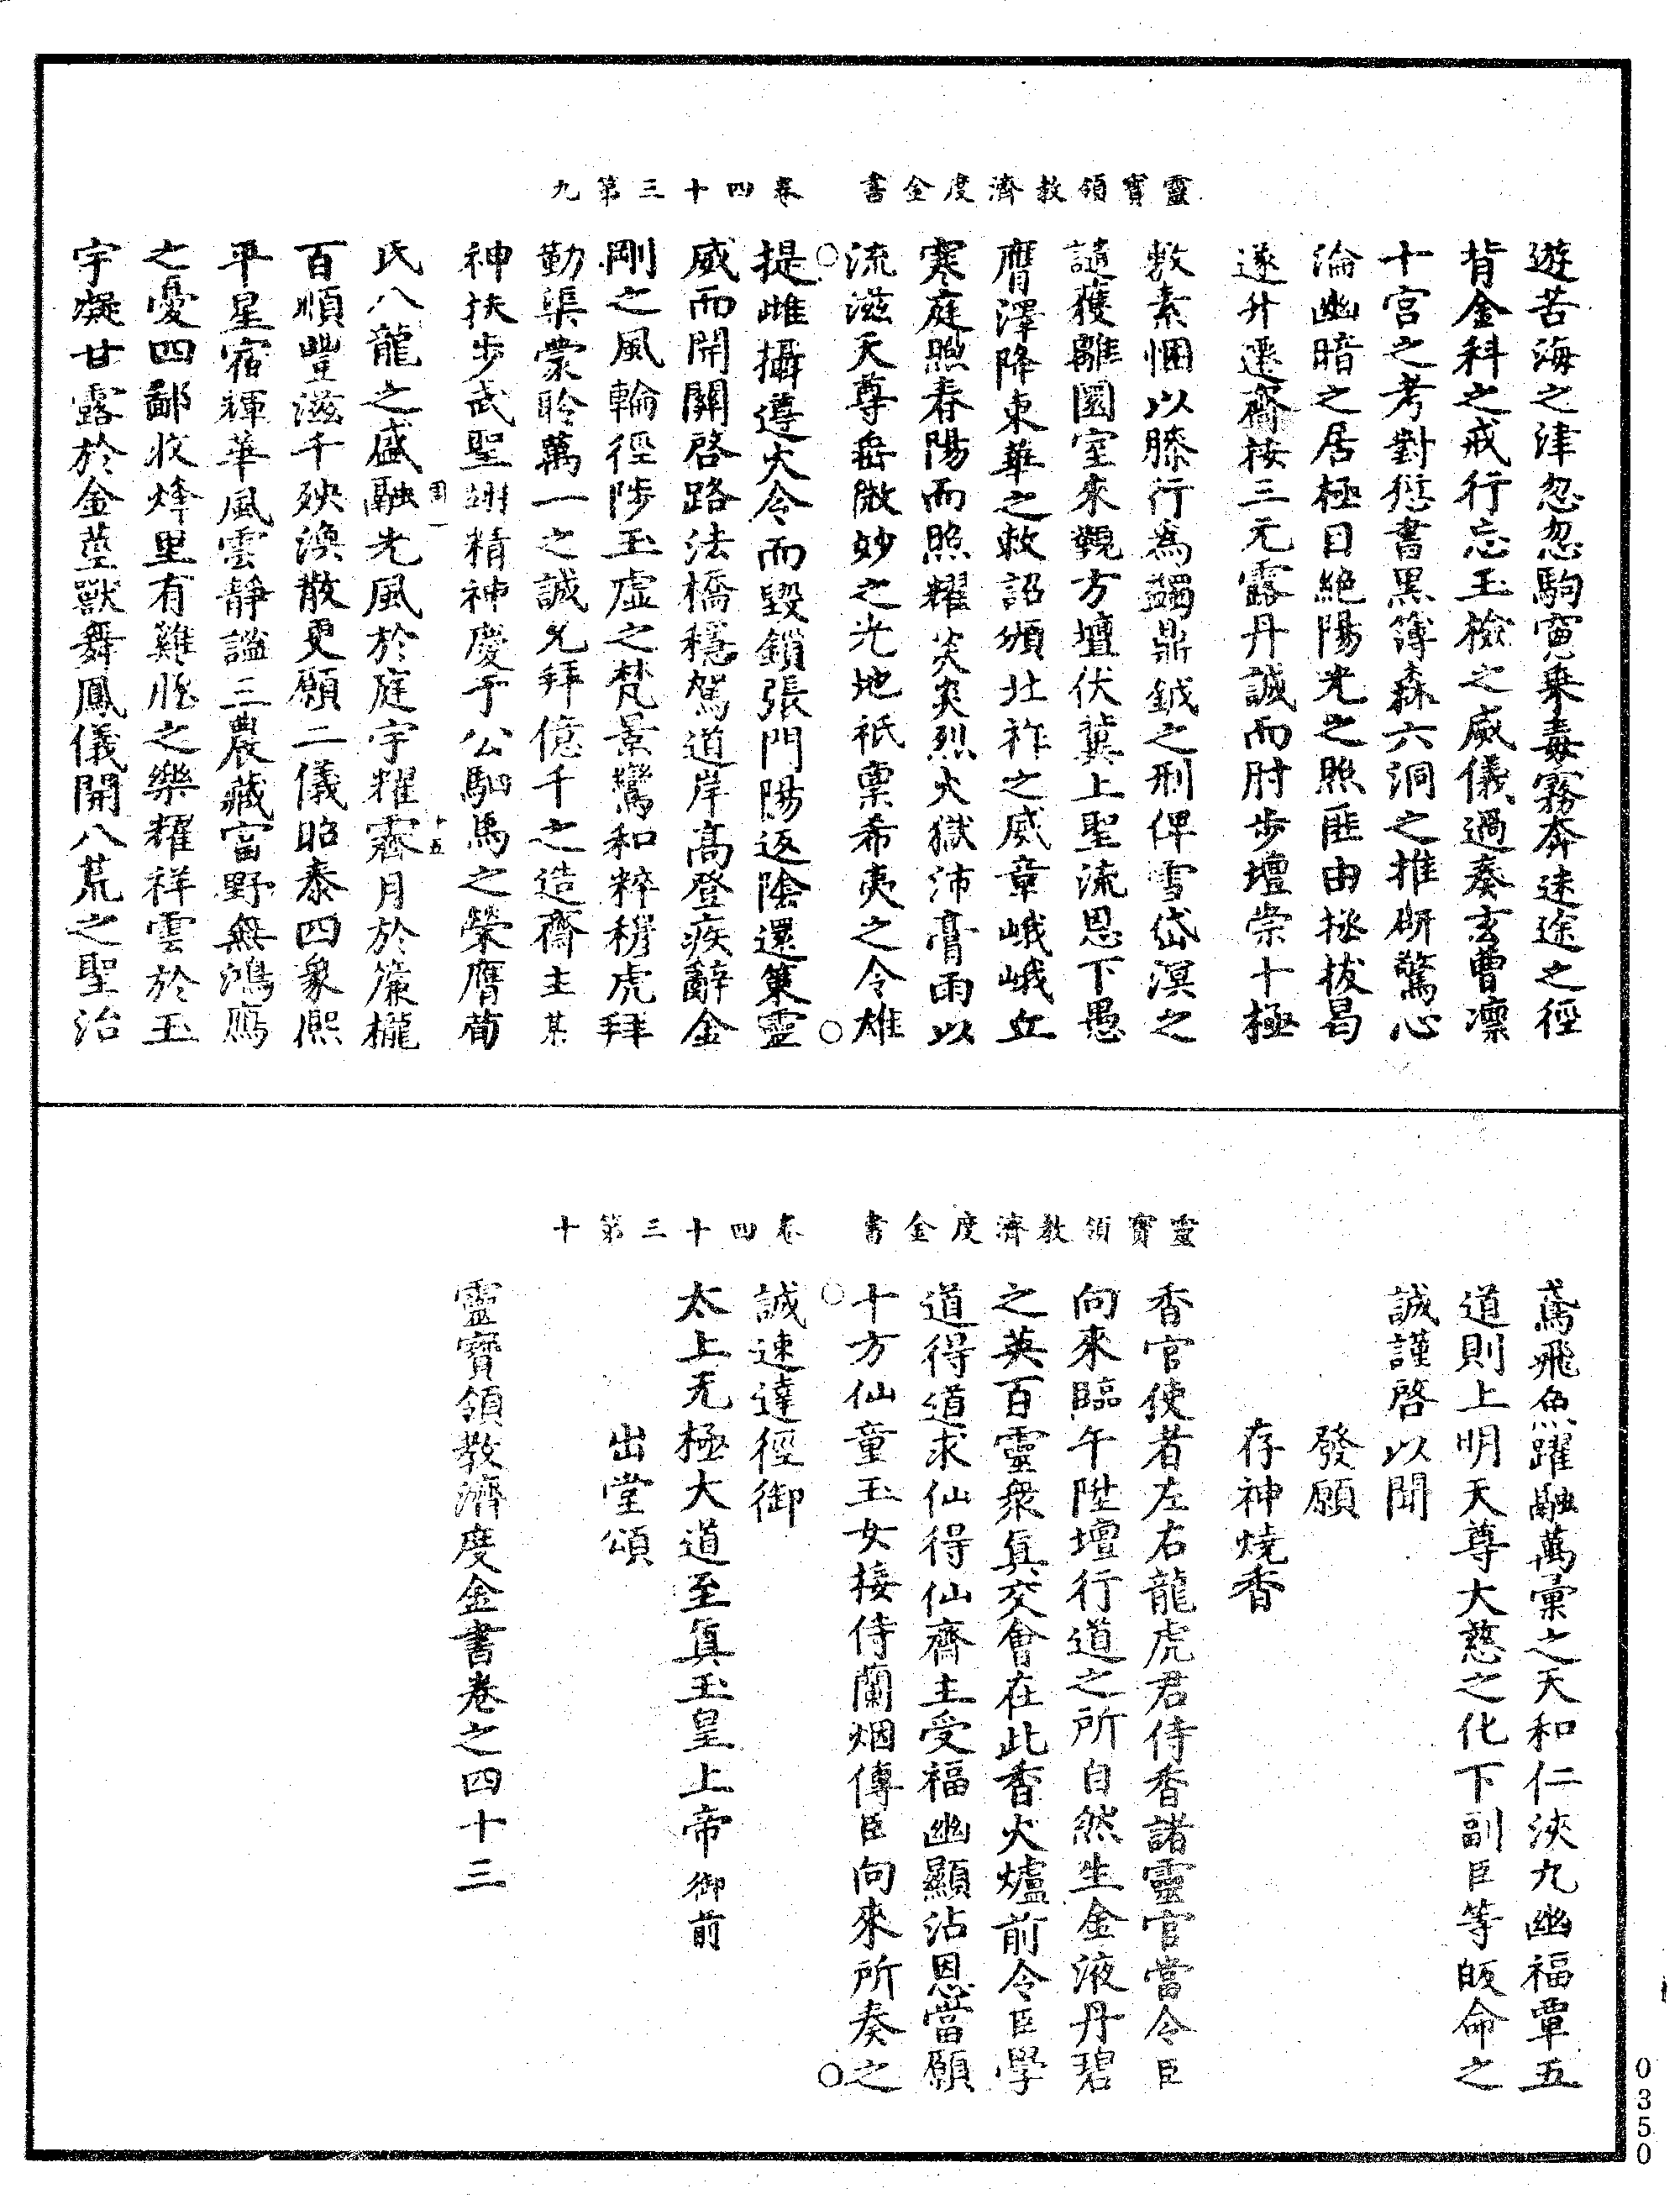 靈寶領教濟度金書　卷四十三第九
遊苦海之津忽忽駒窻乗毒霧奔迷途之徑
背金科之戒行忘玉檢之威儀過奏玄曹凛
十宮之考對愆書黑簿森六洞之推研驚心
淪幽暗之居極目絶陽光之照匪由拯拔曷
遂升遷齋按三元露丹誠而肘步壇崇十極
敷素悃以膝行為蠲鼎鉞之刑俾雪岱溟之
譴獲離圜室來覲方壇伏冀上聖流恩下愚
膺澤降東華之敕詔頒壯祚之威章峨峨立
寒庭煦春陽而照耀炎炎烈火獄沛膏雨以
流滋天尊垂微妙之光地祇稟希夷之令雄
提雌攝遵火令而毀鎖張門陽返陰還策靈
威而開關啓路法橋穩駕道岸高登疾辭金
剛之風輪徑陟玉虛之梵景鸞和粹穆虎拜
勤渠蒙聆萬一之誠允拜億千之造齋主某
神扶步武聖翊精神慶于公駟馬之榮膺荀
氏八龍之盛融光風於庭宇耀霽月於簾櫳
百順豐滋千殃渙散更願二儀昭泰四象熙
平星宿輝華風雲靜謐三農藏富野無鴻鴈
之憂四鄙收烽里有雞㹠之樂耀祥雲於玉
宇凝甘露於金莖獸舞鳳儀開八荒之聖治
靈寶領教濟度金書　卷四十三第十
鳶飛魚躍融萬彙之天和仁浹九幽福覃五
道則上明天尊大慈之化下副臣等皈命之
誠謹啓以聞
發願
存神燒香
香官使者左右龍虎君侍香諸靈官當令臣
向來臨午陞壇行道之所自然生金液丹碧
之英百靈衆真交會在此香火爐前令臣學
道得道求仙得仙齋主受福幽顯沾恩當願
十方仙童玉女接侍蘭烟傳臣向來所奏之
誠速達徑御
太上无極大道至真玉皇上帝御前
出堂頌
靈寶領教濟度金書卷之四十三
0350